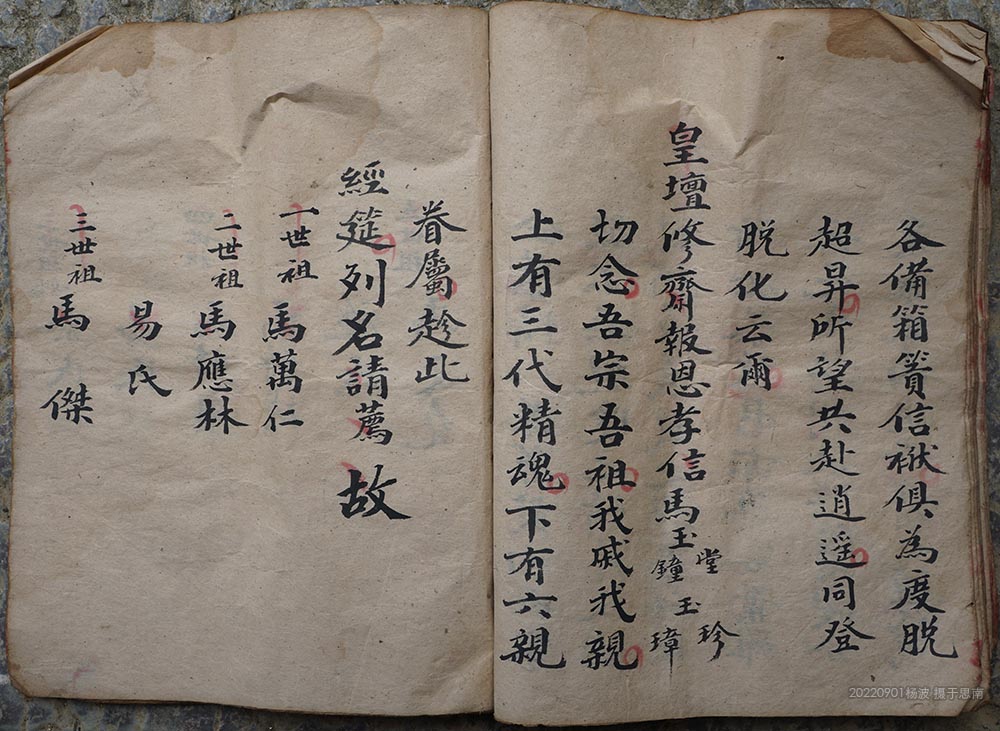 各備箱簀信袱俱為度脱
超昇所望共赴逍遥同登
脱化云爾
皇壇修齋報恩孝信馬玉堂鐘玉珍璋
切念吾宗吾祖我戚我親
上有三代精魂下有六親
眷屬趁此
經筵列名請薦故
一世祖馬萬仁
二世祖馬應林
易氏
三世祖馬傑
20220901杨波 摄于思南